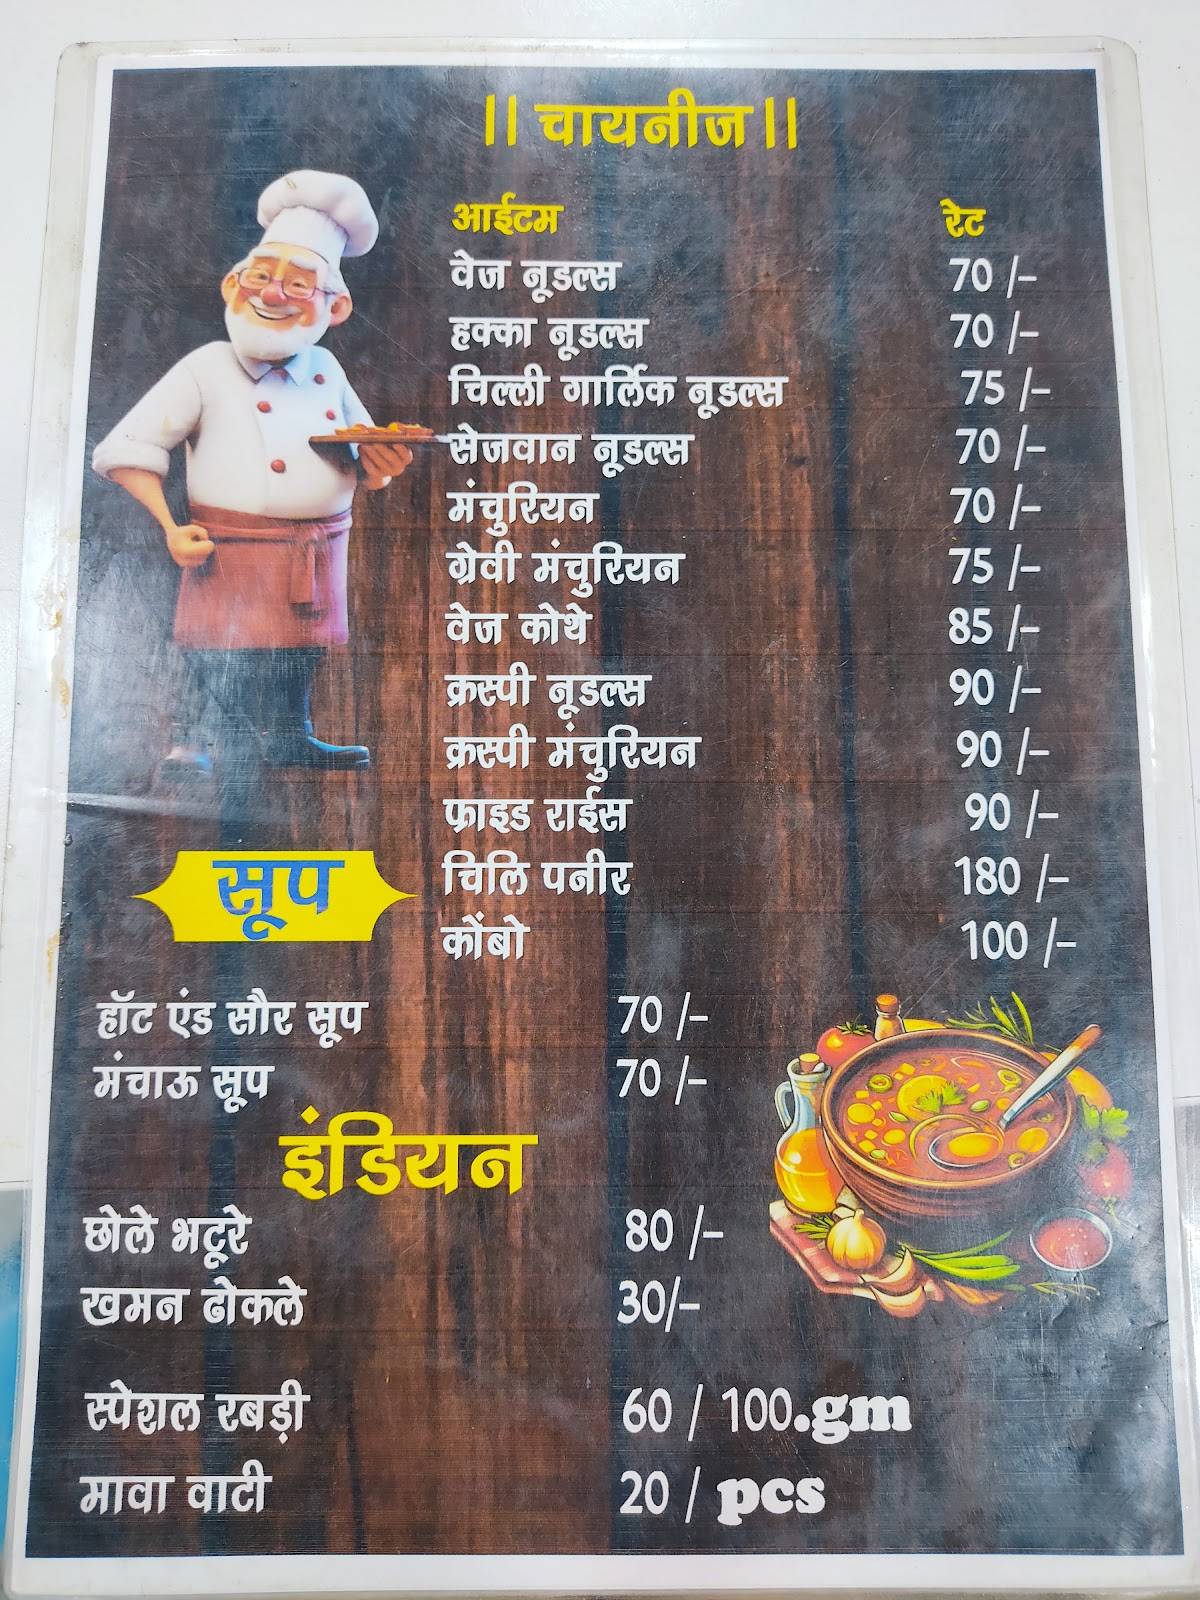 || चायनीज ||
आईटम रेट
वेज नूडल्स 70 /-
हक्का नूडल्स 70 /-
चिल्ली गार्लिक नूडल्स 75 /-
सेजवान नूडल्स 70 /-
मंचुरियन 70 /-
ग्रेवी मंचुरियन 75 /-
वेज कोथे 85 /-
क्रस्पी नूडल्स 90 /-
क्रस्पी मंचुरियन 90 /-
फ्राइड राईस 90 /-
चिलि पनीर 180 /-
कोंबो 100 /-
सूप
हॉट एंड सौर सूप 70 /-
मंचाऊ सूप 70 /-
इंडियन
छोले भटूरे 80 /-
खमन ढोकले 30/-
स्पेशल रबड़ी 60 / 100.gm
मावा वाटी 20 / pcs